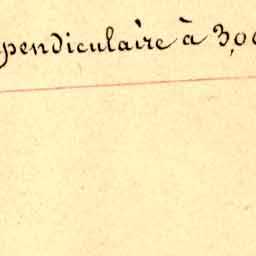 pendiculaire à 3,0